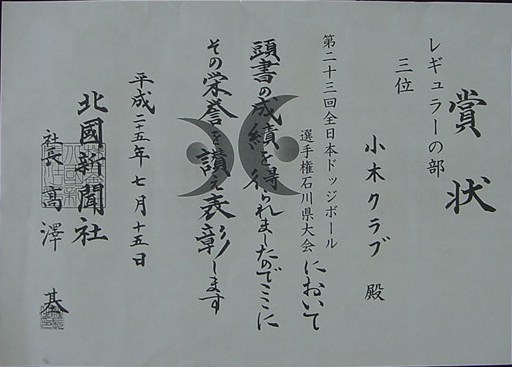 賞状
レギュラーの部
三位
小木クラブ 殿
第二十三回全日本ドッジボール
選手権石川県大会において
頭書の成績を得られましたのでここに
その栄誉を讃え表彰します
平成二十五年七月十五日
北國新聞社
社長 高澤 基